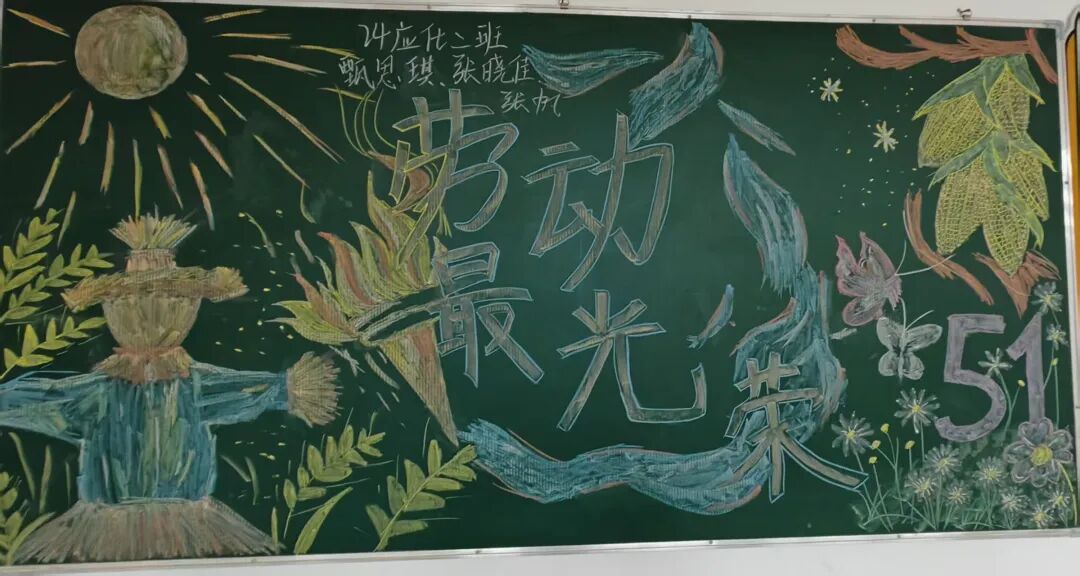 24应化二班
甄思琪、张晓佳、
张帆
劳动
最光荣
51